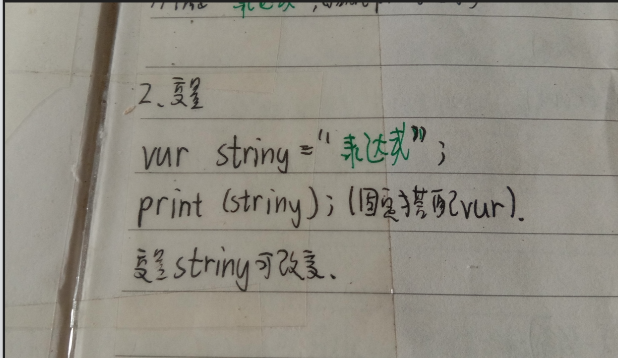 2、变量
var string = "表达式";
print (string); (固定搭配var).
变量string可改变、